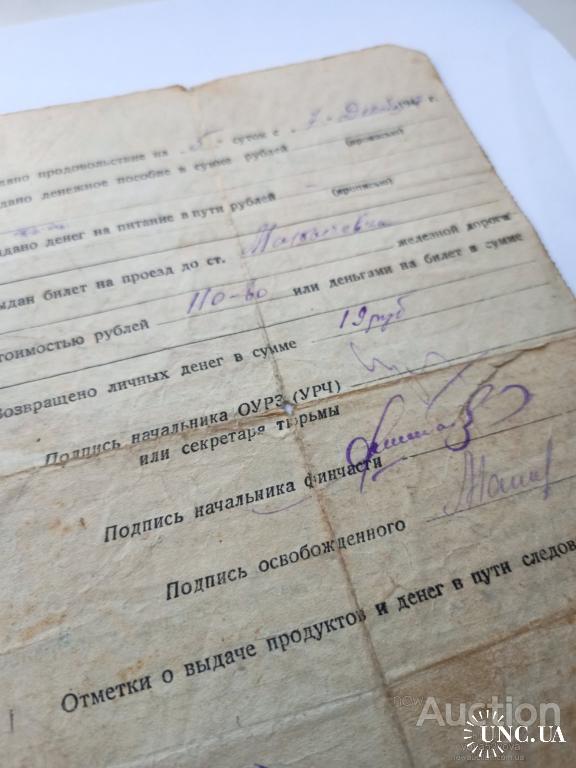 дано продовольствие на 5 суток с „7“ Декабря 194 г.
дано денежное пособие в сумме рублей (прописью)
ыдано денег на питание в пути рублей (прописью)
ыдан билет на проезд до ст. железной дороги
тоимостью рублей 110-во или деньгами на билет в сумме
Возвращено личных денег в сумме 19 руб
Подпись начальника ОУРЗ (УРЧ)
или секретаря тюрьмы
Подпись начальника финчасти
Подпись освобожденного
Отметки о выдаче продуктов и денег в пути следов
Auction
UNC.UA